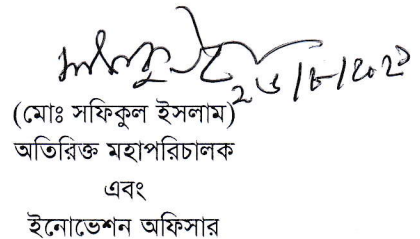 (মোঃ সফিকুল ইসলাম)
অতিরিক্ত মহাপরিচালক
এবং
ইনোভেশন অফিসার